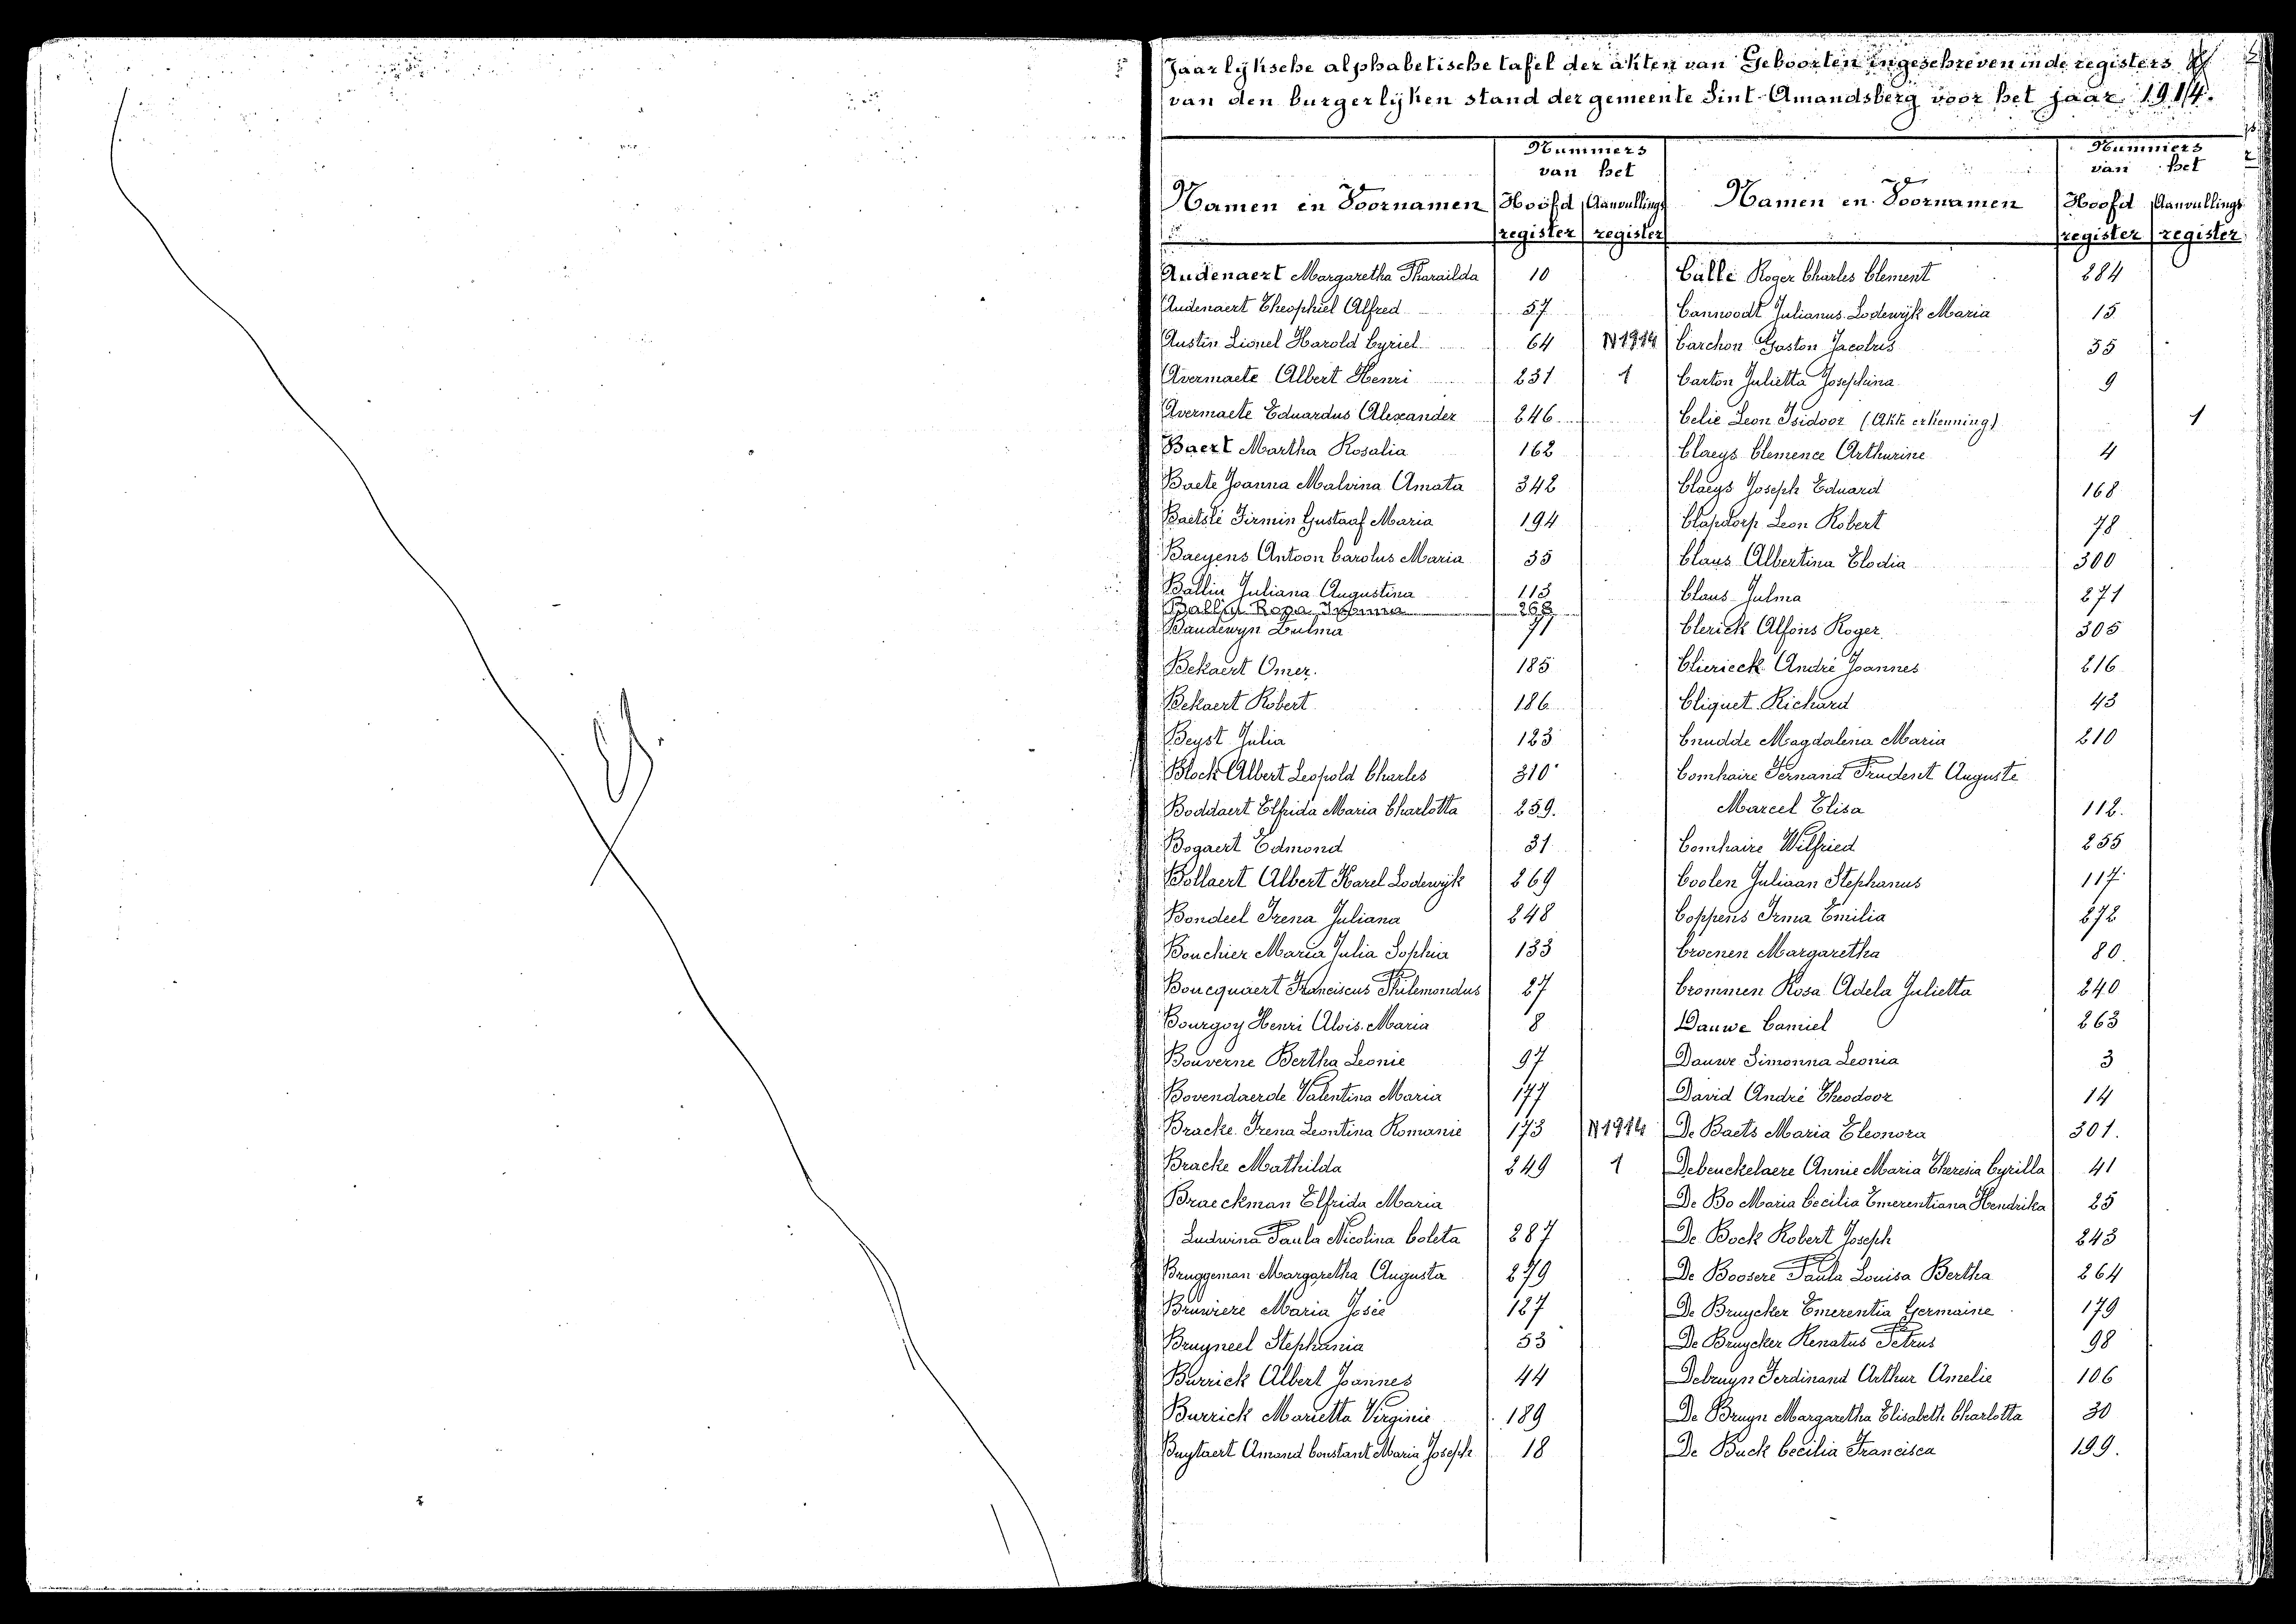 Jaarlyksche alphabetische tafel der akten van Geboorten ingeschreven in de registers
van den burgerlyken stand der gemeente Sint-Amandsberg voor het jaar 1914.
Namen en Voornamen
Nummers
van het
Hoofd register
Aanvullings register
Namen en Voornamen
Nummers
van het
Hoofd register
Aanvullings register
Audenaert Margaretha Pharaïlda 10
Audenaert Theophiel Alfred 57
Austin Lionel Harold Cyriel 64 N 1914
Avermaete Albert Henri 231 1
Avermaete Eduardus Alexander 246
Baert Martha Rosalia 162
Baete Joanna Malvina Amata 342
Baetslé Firmin Gustaaf Maria 194
Baeyens Antoon Carolus Maria 35
Ballin Juliana Augustina 113
Ballin Rosa 268
Baudewyn Zulma 71
Bekaert Omer. 185
Bekaert Robert 186
Beyst Julia 123
Block Albert Leopold Charles 310
Boddaert Elfrida Maria Charlotta 259.
Bogaert Edmond 31
Bollaert Albert Karel Lodewijk 269
Bondeel Irena Juliana 248
Bouchier Maria Julia Sophia 133
Boucquaert Franciscus Philemondus 27
Bourgoy Henri Aloïs Maria 8
Bouverne Bertha Leonie 97
Bovendaerde Valentina Maria 177
Bracke Irena Leontina Romanie 173 N 1914
Bracke Mathilda 249 1
Braeckman Elfrida Maria
Ludwina Paula Nicolina Coleta 287
Bruggeman Margaretha Augusta 279
Bruwiere Maria Josée 127
Bruyneel Stephania 53
Burrick Albert Joannes 44
Burrick Marietta Virginie 189
Buytaert Amand Constant Maria Joseph 18
Callé Roger Charles Clement 284
Cannoodt Julianus Lodewijk Maria 15
Carchon Gaston Jacobus 55
Carton Julietta Josephina 9
Celie Leon Isidoor (Akte erkenning) 1
Claeys Clemence Arthurine 4
Claeys Joseph Eduard 168
Clapdorp Leon Robert 78
Claus Albertina Elodia 300
Claus Julma 271
Clerick Alfons Roger 305
Clierieck André Joannes 216
Cliquet Richard 43
Cnudde Magdalena Maria 210
Comhaire Fernand Prudent Auguste
Marcel Elisa 112.
Comhaire Wilfried 255
Coolen Juliaan Stephanus 117
Coppens Irma Emilia 272
Croenen Margaretha 80.
Crommen Rosa Adela Julietta 240
Dauwe Camiel 263
Dauwe Simonna Leonia 3
David André Theodoor 14
De Baets Maria Eleonora 301.
Debeuckelaere Annie Maria Theresia Cyrilla 41
De Bo Maria Cecilia Emerentiana Hendrika 25
De Bock Robert Joseph 243
De Boosere Paula Louisa Bertha 264
De Bruycker Emerentia Germaine 179
De Bruycker Renatus Petrus 98
Debruyn Ferdinand Arthur Amelie 106
De Bruyn Margaretha Elisabeth Charlotta 30
De Buck Cecilia Francisca 199.